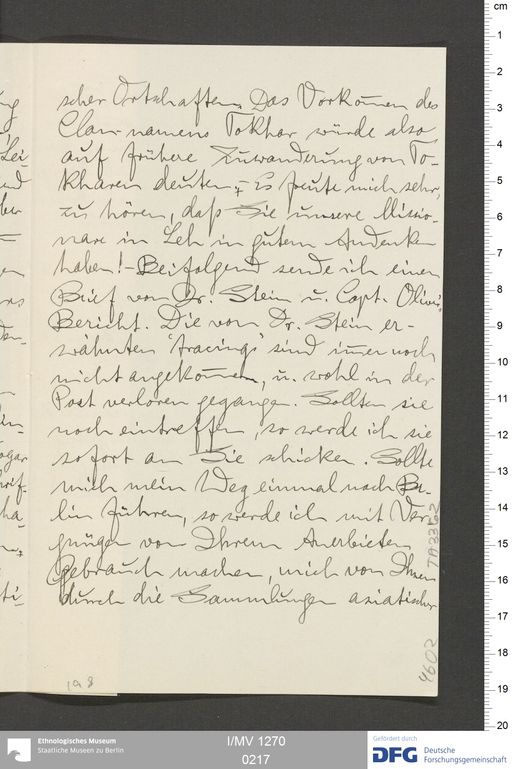 scher Ortschaften. Das Vorkom̄en des
Clan-namens Tokhar würde also
auf frühere Zuwanderung von To-
kharen deuten. – Es freute mich sehr,
zu hören, daß Sie unsere Missio-
nare in Leh in gutem Andenken
haben! – Beifolgend sende ich einen
Brief von Dr. Stein u. Capt. Olivi's
Bericht. Die von Dr. Stein er-
wähnten 'tracings' sind im̄er noch
nicht angekom̄en, u. wohl in der
Post verloren gegangen. Sollten sie
noch eintreffen, so werde ich sie
sofort an Sie schicken. Sollte
mich mein Weg einmal nach Ber-
lin führen, so werde ich mit Ver-
gnügen von Ihrem Anerbieten
Gebrauch machen, mich von Ihnen
durch die Sammlungen asiatischer
TA3362
4602
198
cm
1
2
3
4
5
6
7
8
9
10
11
12
13
14
15
16
17
18
19
20
Ethnologisches Museum
Staatliche Museen zu Berlin
I/MV 1270
0217
Gefördert durch
DFG Deutsche
Forschungsgemeinschaft